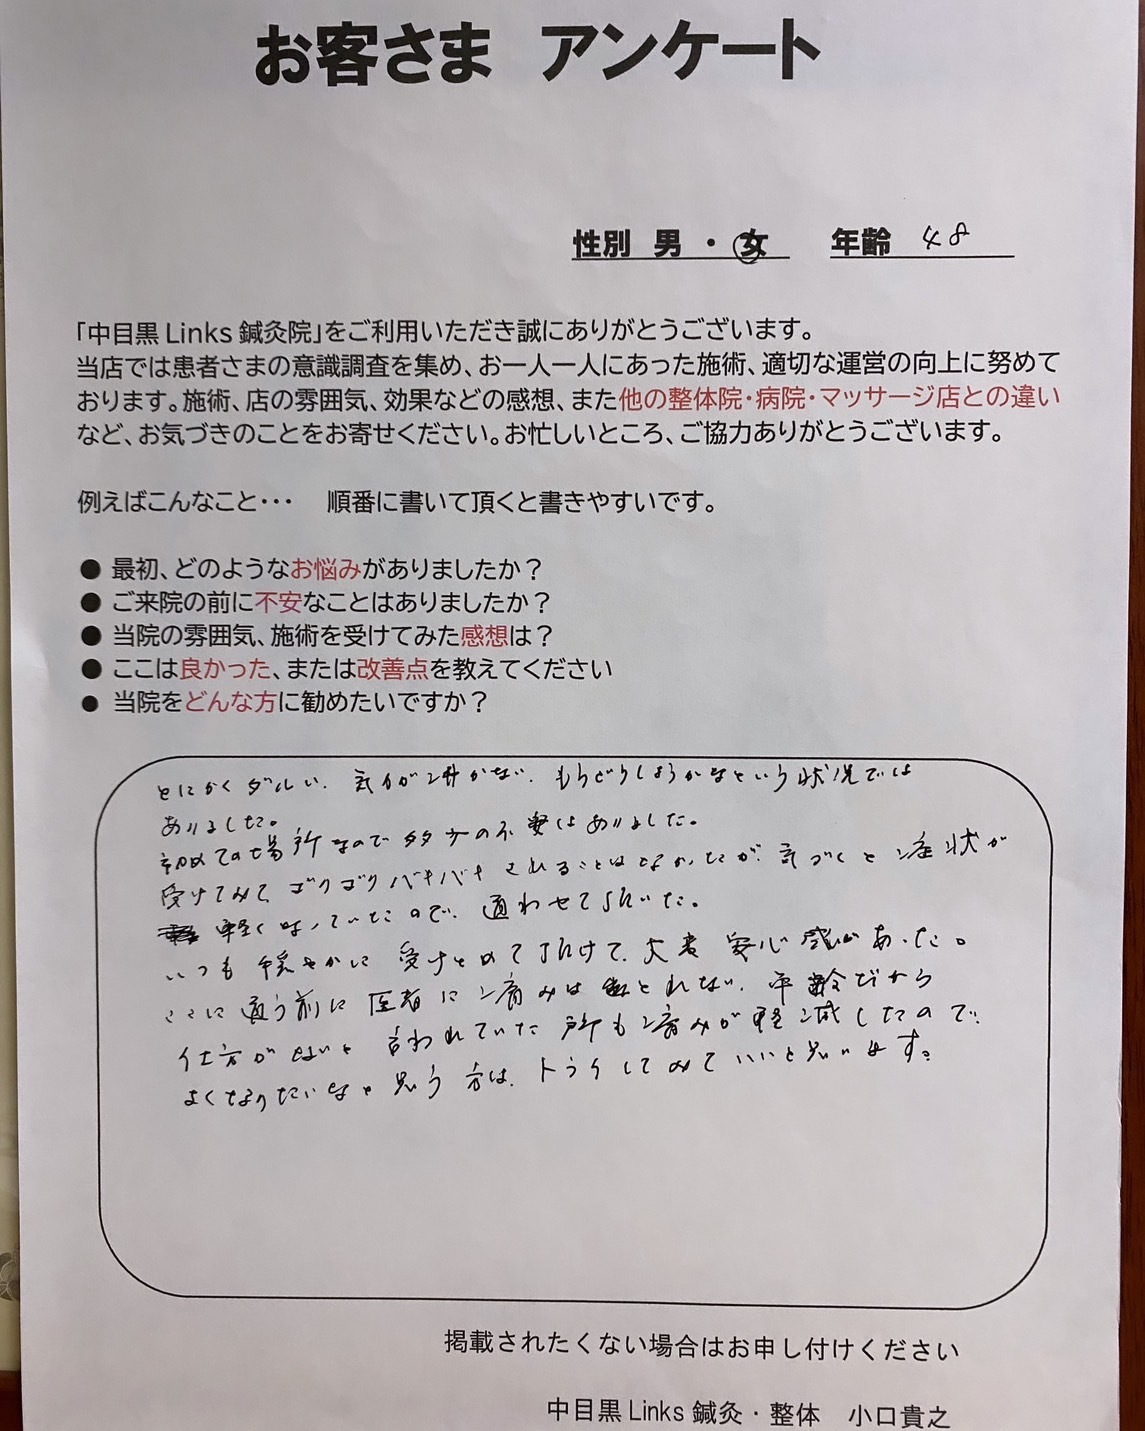 お客さま アンケート
性別 男 ・ 女 年齢 48
「中目黒 Links 鍼灸院」をご利用いただき誠にありがとうございます。
当店では患者さまの意識調査を集め、お一人一人にあった施術、適切な運営の向上に努めて
おります。施術、店の雰囲気、効果などの感想、また他の整体院・病院・マッサージ店との違い
など、お気づきのことをお寄せください。お忙しいところ、ご協力ありがとうございます。
例えばこんなこと・・・ 順番に書いて頂くと書きやすいです。
● 最初、どのようなお悩みがありましたか？
● ご来院の前に不安なことはありましたか？
● 当院の雰囲気、施術を受けてみた感想は？
● ここは良かった、または改善点を教えてください
● 当院をどんな方に勧めたいですか？
とにかくダルい、気力が湧かない、もうどうしようかなという状況では
ありました。
初めての場所なので多少の不安はありました。
受けてみて、ゴリゴリバキバキされることはなかったが、気づくと症状が
軽くなっていたので、通わせて頂いた。
いつも穏やかに受けとめて頂けて、大変安心感があった。
ここに通う前に医者に痛みはとれない、年齢だから
仕方がないと言われていた所も痛みが軽減したので、
よくなりたいなと思う方は、トライしてみていいと思います。
掲載されたくない場合はお申し付けください
中目黒 Links 鍼灸・整体 小口貴之